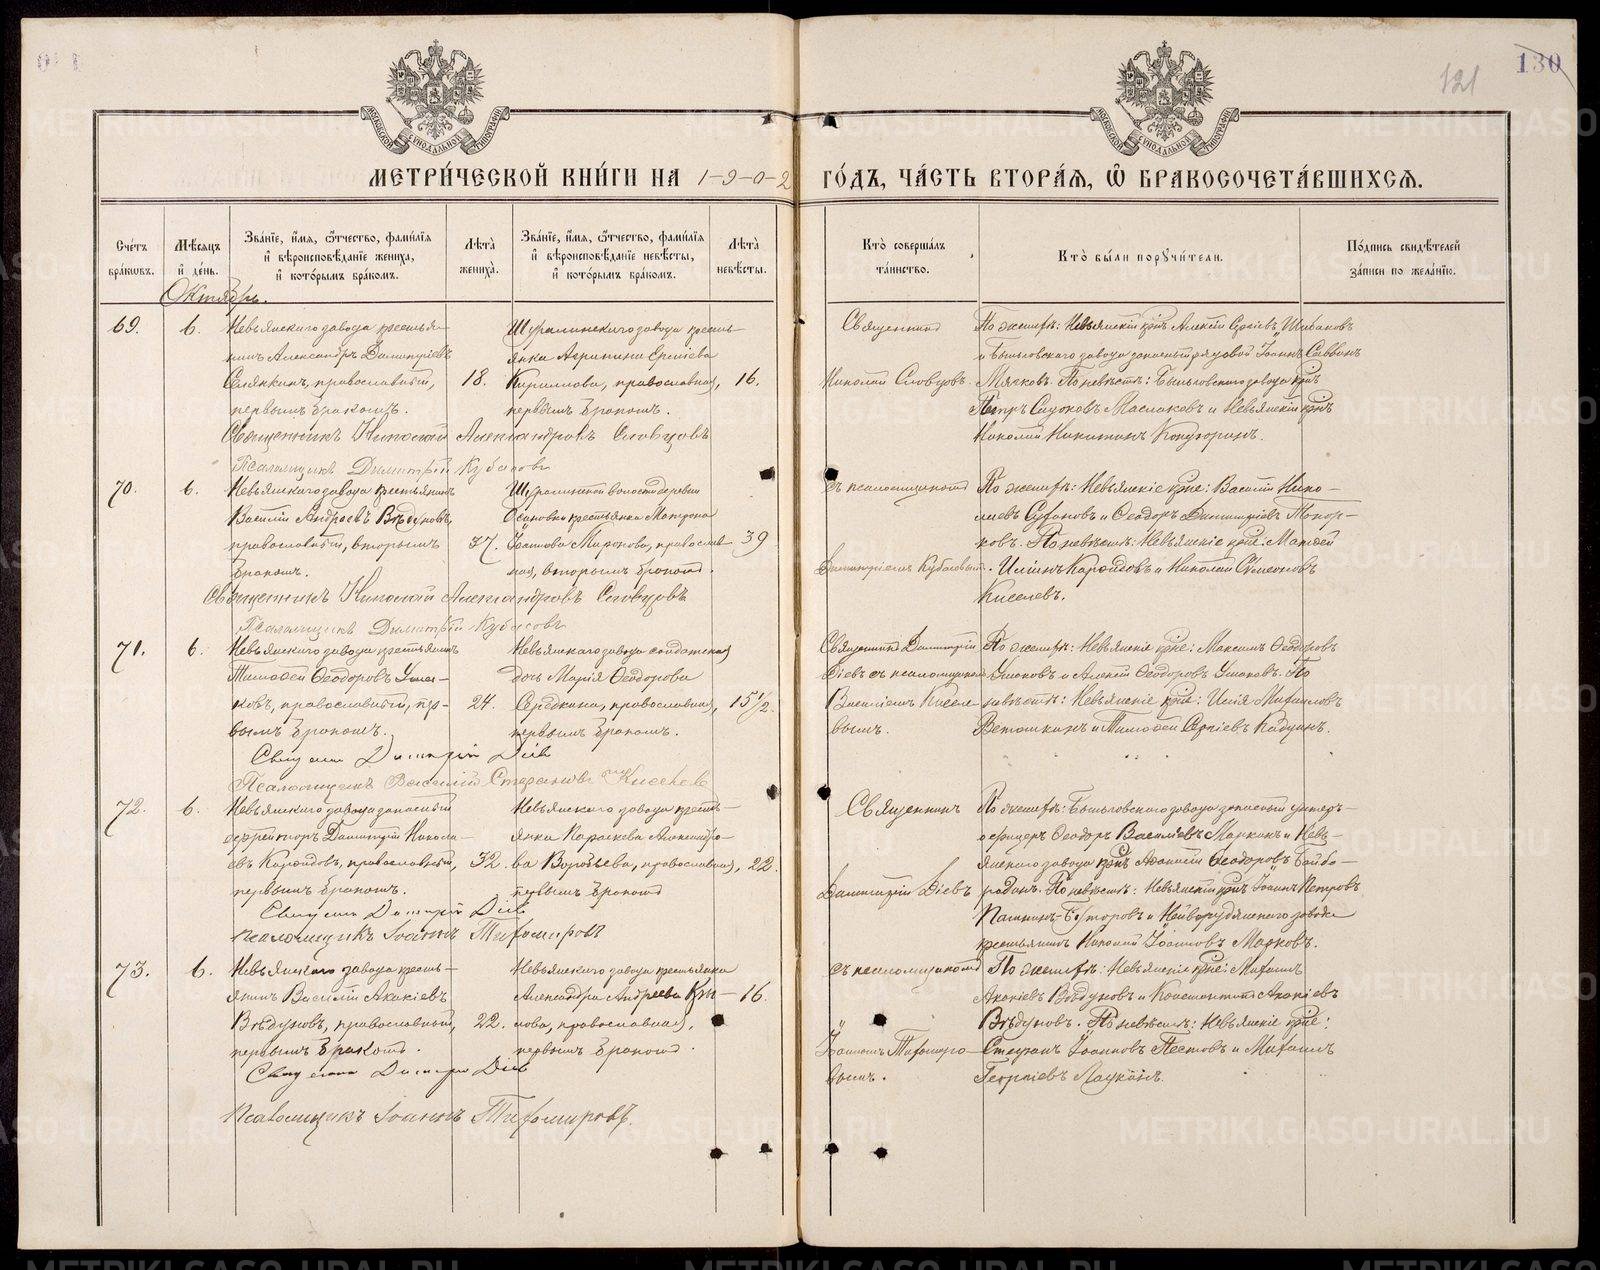 130
121
МОСКОВСКОЙ СѴНОДАЛЬНОЙ ТИПОГРАФІИ
МОСКОВСКОЙ СѴНОДАЛЬНОЙ ТИПОГРАФІИ
МЕТРИ́ЧЕСКОЙ КНИ́ГИ НА 1-9-0-2 ГО́ДЪ, ЧА́СТЬ ВТОРА́Я, Ѡ БРАКОСОЧЕТА́ВШИХСЯ.
Сче́тъ бра́ковъ.
Мѣ́сяцъ и҆ де́нь.
Зва́нїе, и҆́мя, ѻ҆́тчество, фами́лїя и҆ вѣроисповѣ́данїе жениха̀, и҆ кото́рымъ бра́комъ.
Лѣ́та жениха̀.
Зва́нїе, и҆́мя, ѻ҆́тчество, фами́лїя и҆ вѣроисповѣ́данїе невѣ́сты, и҆ кото́рымъ бра́комъ.
Лѣ́та невѣ́сты.
Кто̀ соверша́лъ та́инство.
Кто̀ бы́ли порꙋчи́тели.
По́дпись свидѣ́телей за́писи по жела́нїю.
Октябрь.
69.
6.
Невьянскаго завода крестья-
нинъ Александръ Димитріевъ
Селянкинъ, православный,
первымъ бракомъ.
18.
Шуралинскаго завода кресть-
янка Агриппина Ергиева
Кириллова, православная,
первымъ бракомъ.
16.
Священник
Николай Словцовъ
По женихѣ: Невьянскій кр̃нъ Алексій Сергіевъ Шибаковъ
и Быньговскаго завода запасный рядовой Іоаннъ Саввинъ
Мягковъ. По невѣстѣ: Быньговскаго завода кр̃нъ
Петръ Маслаковъ и Невьянскій кр̃нъ
Николай Никитинъ Кондюринъ.
Священникъ Николай Александровъ Словцовъ
Псаломщикъ Димитрій Кубасовъ
70.
6.
Невьянскаго завода крестьянинъ
Василій Андреевъ Вѣдуновъ,
православный, вторымъ
бракомъ.
37.
Шуралинской волости деревни
Осиновки крестьянка Матрона
Іоаннова Миронова, православ-
ная, вторымъ бракомъ.
39
съ псаломщикомъ
Димитріемъ Кубасовымъ.
По женихѣ: Невьянскіе кр̃не: Василій Нико-
лаевъ Суфановъ и Ѳеодоръ Димитріевъ Топор-
ковъ. По невѣстѣ: Невьянскіе кр̃не: Матѳей
Илiинъ Карфидовъ и Николай Сѵмеоновъ
Киселевъ.
Священникъ Николай Александровъ Словцовъ
Псаломщикъ Димитрій Кубасовъ
71.
6.
Невьянскаго завода крестьянинъ
Тимоѳей Ѳеодоровъ Ушa-
ковъ, православный, пер-
вымъ бракомъ.
24.
Невьянскаго завода солдатская
дочь Марія Ѳеодорова
Середкина, православная,
первымъ бракомъ.
15 1/2.
Священник Димитрій
Діевъ съ псаломщикомъ
Василіемъ Киселе-
вымъ.
По женихѣ: Невьянскіе кр̃не: Максимъ Ѳеодоровъ
Ушаковъ и Алексій Ѳеодоровъ Ушаковъ. По
невѣстѣ: Невьянскіе кр̃не: Илія Михаиловъ
Ветошкинъ и Тимоѳей Сергіевъ Кадцынъ.
Священникъ Димитрій Діевъ
Псаломщикъ Василій Стефановъ Киселевъ
72.
6.
Невьянскаго завода запасный
ефрейторъ Димитрій Никола-
евъ Карфидовъ, православный,
первымъ бракомъ.
32.
Невьянскаго завода кресть-
янка Параскева Александро-
ва Воробьева, православная,
первымъ бракомъ
22.
Священникъ
Димитрій Діевъ
По женихѣ: Быньговскаго завода запасный унтеръ-
офицеръ Ѳеодоръ Василіевъ Мапкинъ и Невь-
янскаго завода кр̃нъ Ѳеодоровъ Байбо-
родинъ. По невѣстѣ: Невьянскій кр̃нъ Іоаннъ Петровъ
и Нейворудянскаго завода
крестьянинъ Николай Іоанновъ Масковъ.
Священникъ Димитрій Діевъ
псаломщикъ Іоаннъ Тихомировъ
73.
6.
Невьянскаго завода кресть-
янинъ Василій Акакіевъ
Вѣдуновъ, православный,
первымъ бракомъ.
22.
Невьянскаго завода крестьянка
Александра Андреева Кры-
лова, православная,
первымъ бракомъ.
16.
съ псаломщикомъ
Іоанномъ Тихомиро-
вымъ.
По женихѣ: Невьянскіе кр̃не: Михаилъ
Акакіевъ Вѣдуновъ и Константинъ Акакіевъ
Вѣдуновъ. По невѣстѣ: Невьянскіе кр̃не:
Стефанъ Іоанновъ Пестовъ и Михаилъ
Георгіевъ Лоукинъ.
Священникъ Димитрій Діевъ
псаломщикъ Іоаннъ Тихомировъ.
METRIKI.GASO-URAL.RU